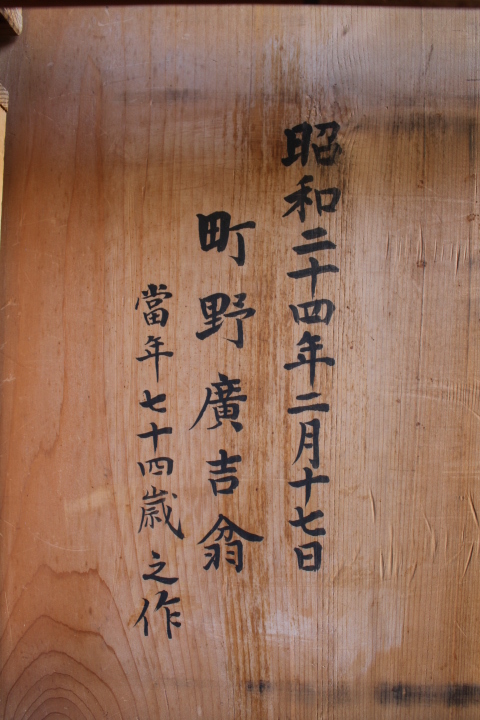 昭和二十四年二月十七日
町野廣吉翁
當年七十四歳之作